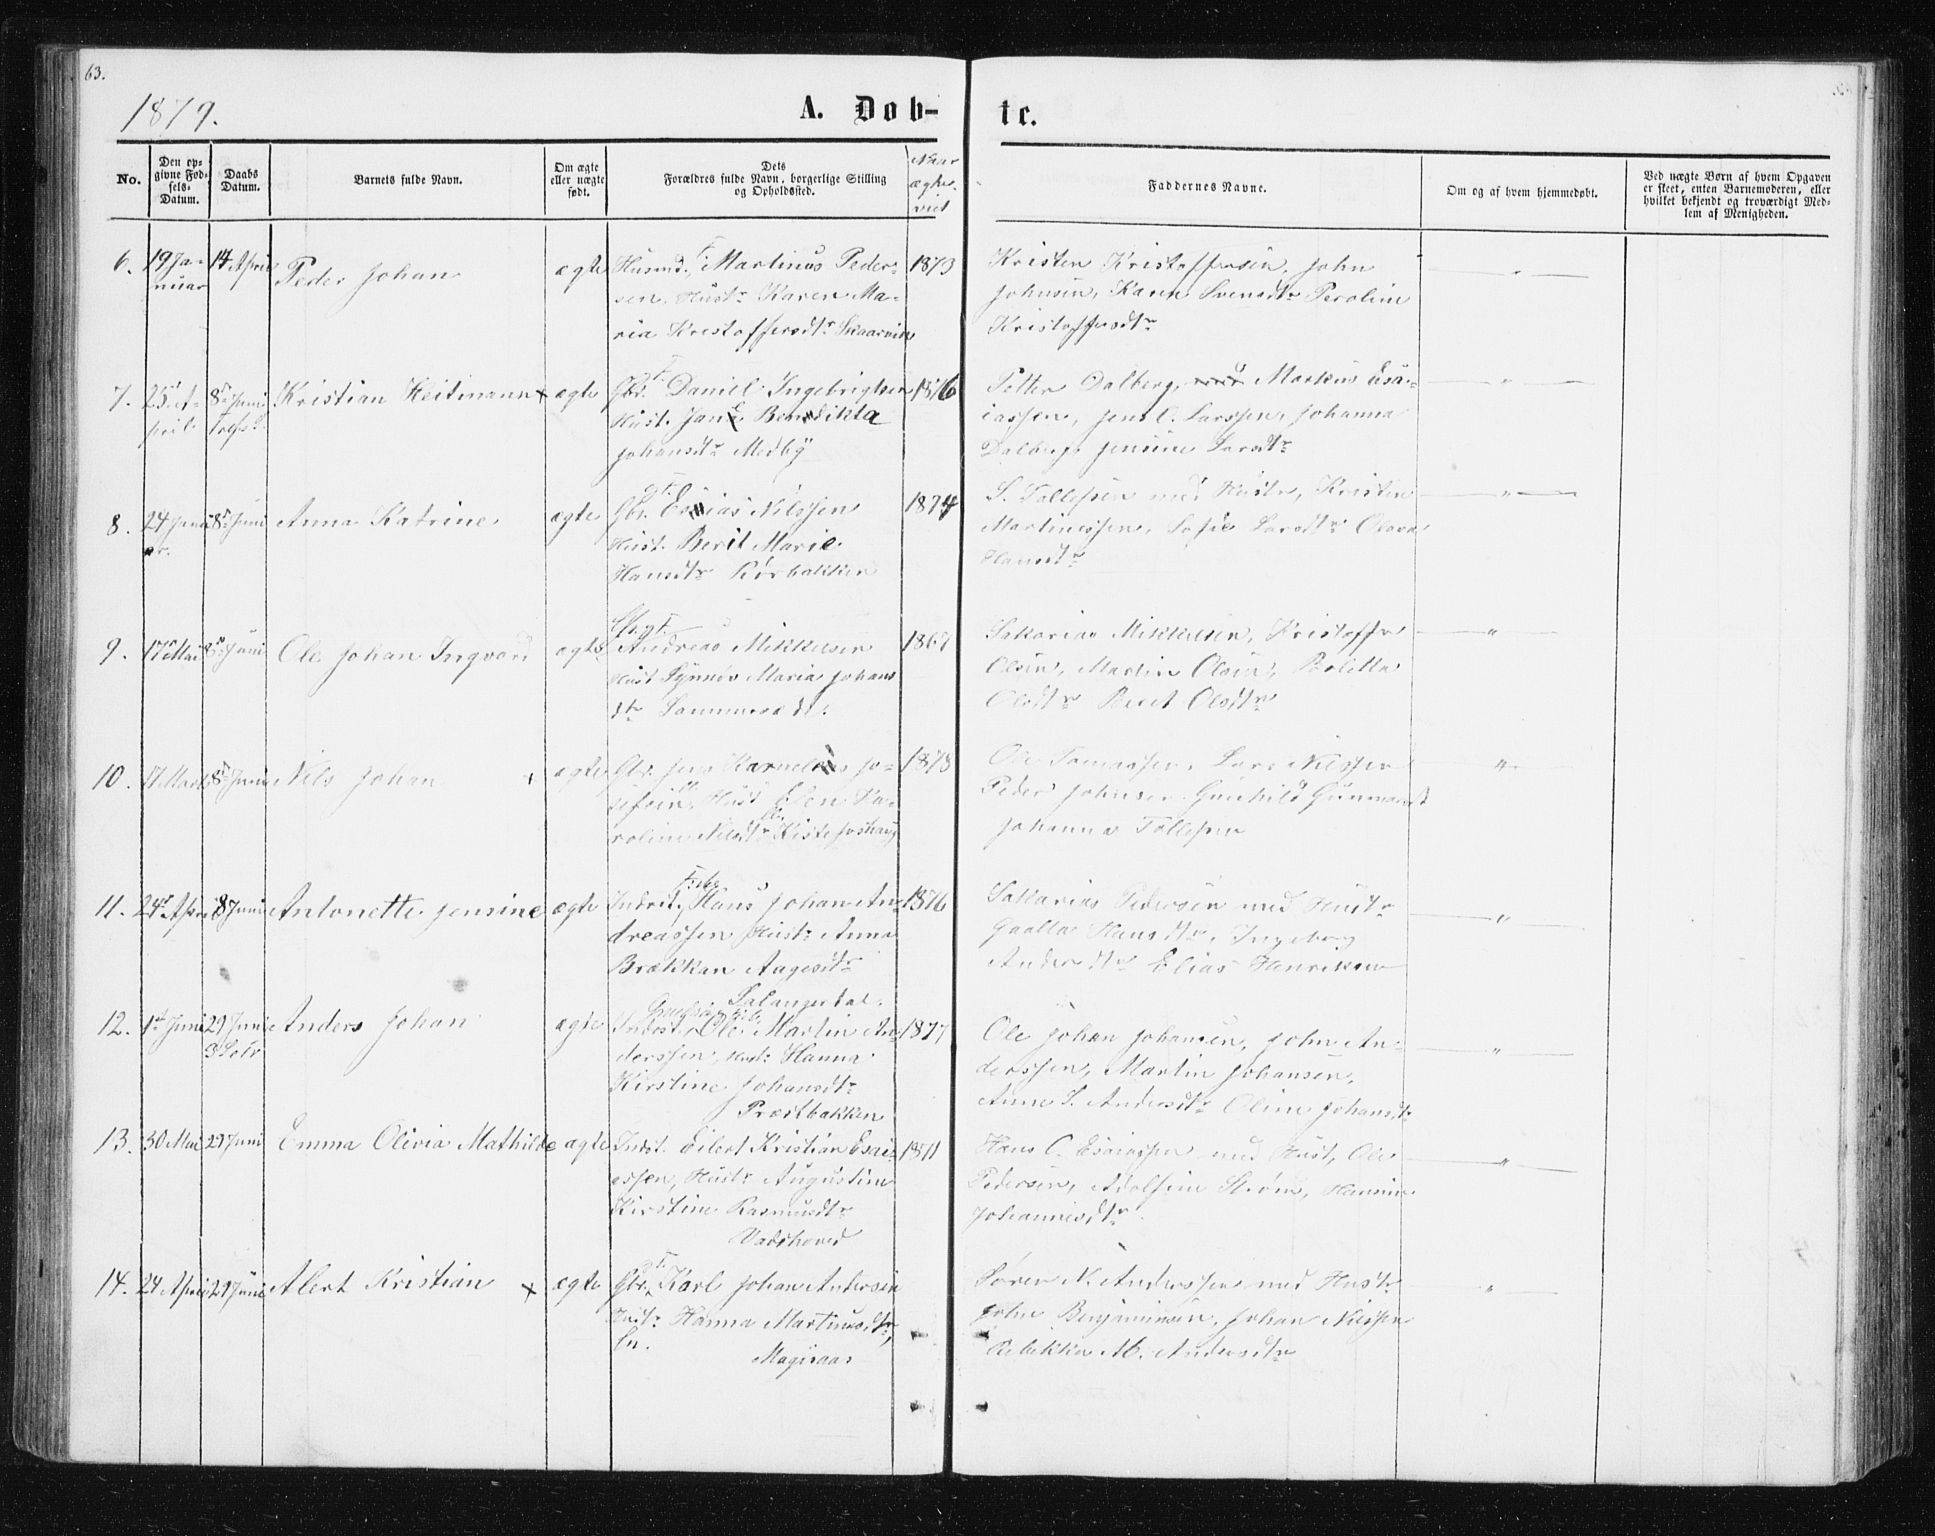 63.
1879.
A. Døb-
te.
No.
Den op-
givne Fød-
sels-
Datum.
Daabs
Datum.
Barnets fulde Navn.
Om ægte
eller uægte
født.
Dets
Forældres fulde Navn, borgerlige Stilling
og Opholdssted.
Naar
ægte-
viet
Faddernes Navne.
Om og af hvem hjemmedøbt.
Ved uægte Børn af hvem Opgaven
er skeet, enten Barnemoderen, eller
hvilket bekjendt og troværdigt Med-
lem af Menigheden.
6. 19 Ja-
nuar
14 April
Peder Johan
ægte
Husmd. F. Martinus Peder-
sen, Hustr. Karen Ma-
ria Kristoffersdtr.
1873
Kristen Kristoffersen, John
Johnsen, Karen Svensdtr Peroline
Kristoffersdtr
7. 25 A-
pril
8de Juni
Kristian Heitmann x
ægte
Gbr. F. Daniel Ingebrigtsen
Hust. Jane Bendikta
Johansdtr Medby
1876
Petter Dalberg, Markus Esa-
iassen, Jens C. Larssen, Johanna
Dalberg, Jensine Larsdtr
8. 24 Janu
ar.
8de Juni
Anna Katrine
ægte
Gbr. Esaias Nilssen
Hust. Berit Marie
Hansdtr Rørbakken
1874
S. Tollefsen med Hustr, Kristen
Martinussen, Sofie Larsdtr Olava
Hansdtr
9. 17de Mai
8de Juni
Ole Johan Ingvard
ægte
Andreas Mikkelsen
Hust Synnøv Maria Johans
dtr
1867
Sakarias Mikkelsen, Kristoffer
Olsen, Martin Olsen, Boletta
Olsdtr Berit Olsdtr
10. 17 Marts
8de Juni
Nils Johan x
ægte
Gbr. Jens Kornelius Jo-
sefsen, Hust Elen Ka-
roline Nilsdtr
1878
Ole Tomassen, Lars Nilssen
Peder Johnsen Gunhild
Johanna Tollefsen
11. 24 April
8 Juni
Antonette Jensine
ægte
Indrst. Hans Johan An-
dreassen Hustr Anna
Brækkan Aagesdtr
Salangsdal.
1876
Sakarias Pedersen med Hustr
Hansdtr, Ingeborg
Andersdtr Elias Henriksen
12. 1ste Juni
29 Juni
Anders Johan
ægte
Indrst. Ole Martin An-
derssen, Hustr Hanna
Kirstine Johansdtr
Præstbakken
1877
Ole Johan Johansen, John An-
derssen, Martin Johansen,
Anne S. Andersdtr Oline Johansdtr
13. 30 Mai
29 Juni
Emma Olivia Mathilde
ægte
Indst. Eilert Kristian Esai-
assen, Hustr Augustine
Kirstine Rasmusdtr
Vadshoved
1871
Hans C. Esaiassen med Hust, Ole
Pedersen, Adolfine Strøm, Hansine
Johannesdtr
14. 24 April
29 Juni
Alert Kristian x
ægte
Gbr. Karl Johan Andersen
Hustr. Hanna Martinusdtr,
Magisaas
Søren N. Anderssen med Hustr
John Benjaminsen, Johan Nilssen
Rebekka M. Andersdtr